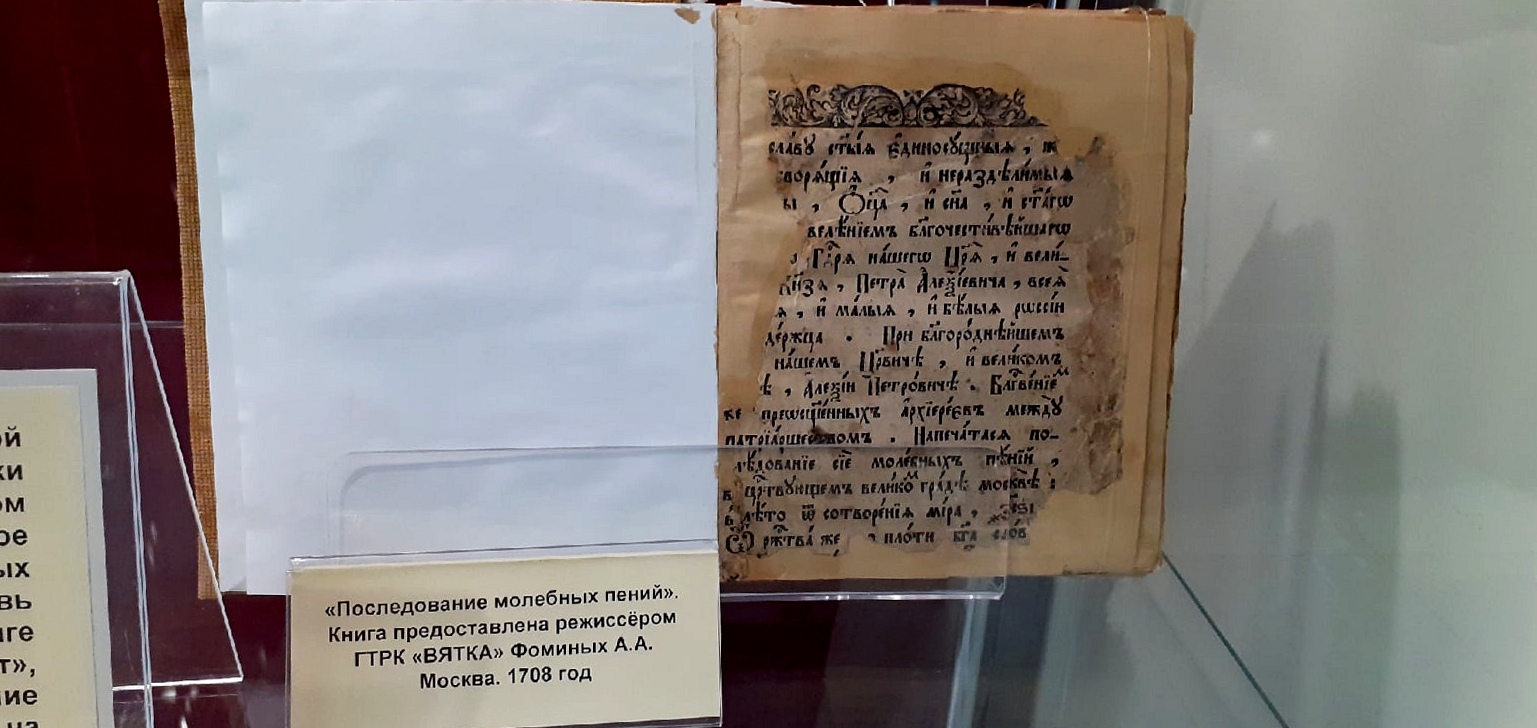 славꙋ ст҃ы́ѧ є҆диносꙋ́щныѧ , и҆
творѧ́щїѧ , и҆ нераздѣли́мыѧ
ы , Ѻ҆ц҃а̀ , и҆ сн҃а , и҆ ст҃а́гѡ
велѣ́нїемъ бл҃гочести́вѣйшагѡ
Гдⷭ҇рѧ на́шегѡ Цр҃ѧ̀ , и҆ вели-
кнѧ́зѧ , Петра̀ А҆леѯі́евича , всеѧ̀
ѧ , и҆ ма́лыѧ , и҆ бѣ́лыѧ рѡссі́и
де́ржца . При бл҃горо́днѣйшемъ
на́шемъ Цр҃вичѣ , и҆ вели́комъ
ѣ , А҆леѯі́и Петро́вичѣ . Бл҃гве́нїемъ
же преѡсщ҃е́нныхъ а҆рхїере́євъ междꙋ̀
патрїа́ршествомъ . Напеча́тасѧ по-
лѣ́дованїе сїѐ моле́бныхъ пѣ́нїй ,
в цр҃твꙋющемъ вели́комъ гра́дѣ москвѣ̀ :
в лѣ́то ѿ сотворе́нїѧ мі́ра ,
Ѿ ржⷭ҇тва̀ же пло́ти бг҃а сло́в
«Последование молебных пений».
Книга предоставлена режиссёром
ГТРК «ВЯТКА» Фоминых А.А.
Москва. 1708 год
ой
ки
ом
ое
ых
вь
иге
т»,
ние
на